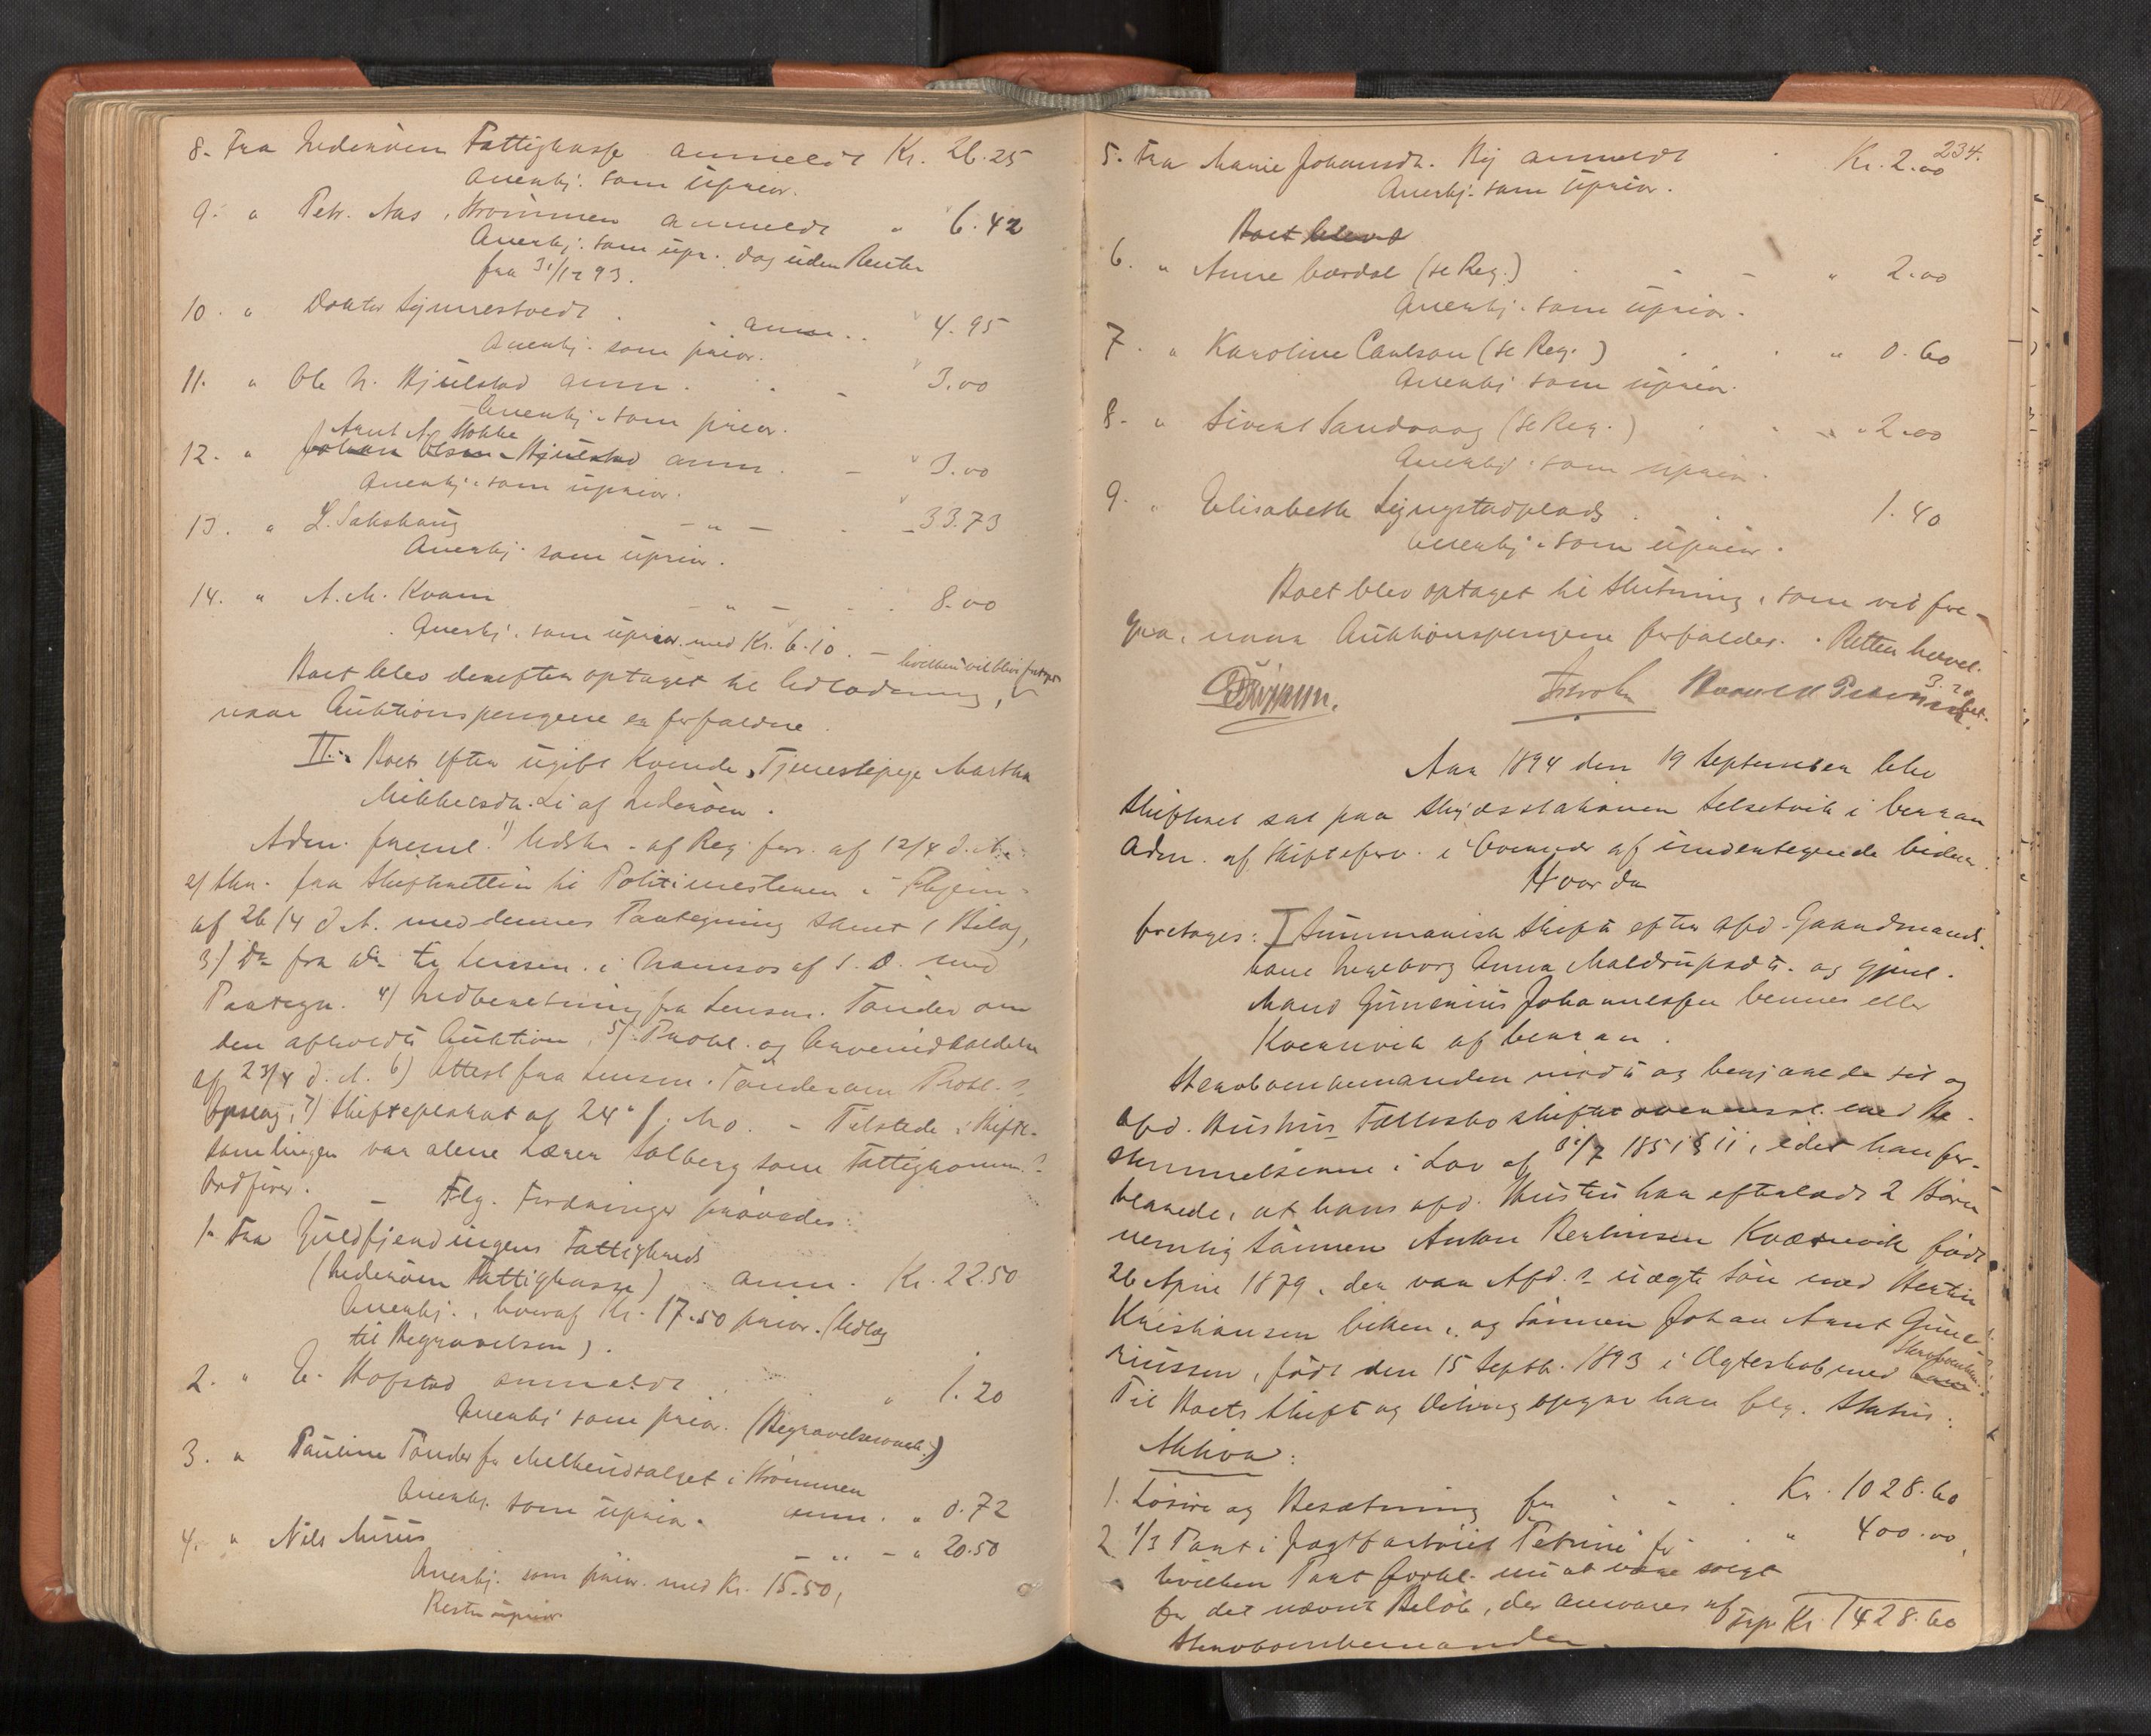 8. Fra Inderöens Fattigkasse anmeldt Kr. 26.25
Anerkj. som uprior.
9. " Petr. Aas, Strömmen anmeldt " 6.42
Anerkj. som upr. dog uden Renter
fra 31/12 93.
10. " Doktor Lynnestvedt anm. " 4.95
Anerkj. som prior.
11. " Ole N. Hjulstad anm. " 3.00
Anerkj. som prior.
Arnt A. Stokke
12. " Johan Olsen Hjulstad anm. - " 3.00
Anerkj. som uprior.
13. " L. Sakshaug - " - 33.73
Anerkj. som uprior.
14. " A. M. Kvam - " - 8.00
Anerkj. som uprior. med Kr. 6.10. -
Boet blev derefter optaget til Udlodning, hvilken vil blive foretaget
naar Auktionspengene er forfaldne.
II. Boet efter ugift Kvinde, Tjenestepige Martha
Mikkelsdr. Li af Inderöen.
Adm. freml. 1) Udskr. af Reg. forr. af 12/4 d. A.
2) Skr. fra Skifteretten til Politimesteren i
af 26/4 d. A. med dennes Paategning samt 1 Bilag,
3) Do fra do til Lensm. i Namsos af s. D. med
Paategn. 4) Indberetning fra Lensm. Tönder om
den afholdte Auktion, 5) Prokl. og
af 23/4 d. A. 6) Attest fra Lensm. Tönder om Prokl.s
Opslag, 7) Skifteplakat af 24 f. Mo. - Tilstede i Skifte-
samlingen var alene Lærer Solberg som Fattigkomm.s
Ordförer. - Flg. Fordringer prövedes:
1. Fra Guldfjerdingens Fattigkreds
(Inderöens Fattigkasse) anm. Kr. 22.50
Anerkj., hvoraf Kr. 17.50 prior. (Udlæg
til Begravelsen).
2. " E. Hofstad anmeldt " 1.20
Anerkj. som prior. (Begravelsesomk.)
3. " Pauline Tönder for Melkeudsalget i Strömmen
Anerkj. som uprior. anm. " 0.72
4. " Nils Muus - " - " 20.50
Anerkj. som prior. med Kr. 15.50,
Resten uprior
234.
5. Fra Marie Johannsdr. By anmeldt Kr. 2.00
Anerkj. som uprior.
Boet blev
6. " Anne Værdal (se Reg.) - - " 2.00
Anerkj. som uprior.
7. " Karoline Carlson (se Reg.) " 0.60
Anerkj. som uprior.
8. " Sivert Sandvaag (se Reg.) " 2.00
Anerkj. som uprior.
9. " Elisabeth Lyngstadplads 1.40
Anerkj. som uprior.
Boet blev optaget til Slutning, som vil fore-
gaa, naar Auktionspengene forfalder. Retten hævet.
Aar 1894 den 19 September blev
Skifteret sat paa Skydsstationen Selsetvik i Verran
Adm. af Skifteforv. i Overvær af undertegnede Vidner.
Hvorda
foretoges: I Summarisk Skifte efter afd. Gaardmands-
kone Ingeborg Anna Maldrupsdtr. og gjenl.
Mand Gunerius Johannessen Vennes eller
Kvernvik af Verran.
Stervboenkemanden mödte og begjærede sit og
afd. Hustrus Fællesbo skiftet overensst. med Be-
stemmelserne i Lov af 31/7 1851 § 11, idet han for-
klarede, at hans afd. Hustru har efterladt 2 Börn
nemlig Sönnen Anton Bertinsen Kværnvik födt
26 April 1879, der var Afd.s uægte Sön med Bertin
Kristiansen Viken, og Sönnen Johan Arnt Gune-
riussen, födt den 15 Septb. 1893 i Ægteskab med ham Stervboenkem.
Til Boets Skifte og Deling opgav han flg. Status:
Aktiva:
1. Lösöre og Besætning for - - Kr. 1028.60
2. 1/3 Part i Jagtfartöiet "Petrine" for " 400.00,
hvilken Part forkl. nu at være solgt
for det nævnte Belöb, der ansvares af
Stervboenkemanden. Trp. Kr. 1428.60